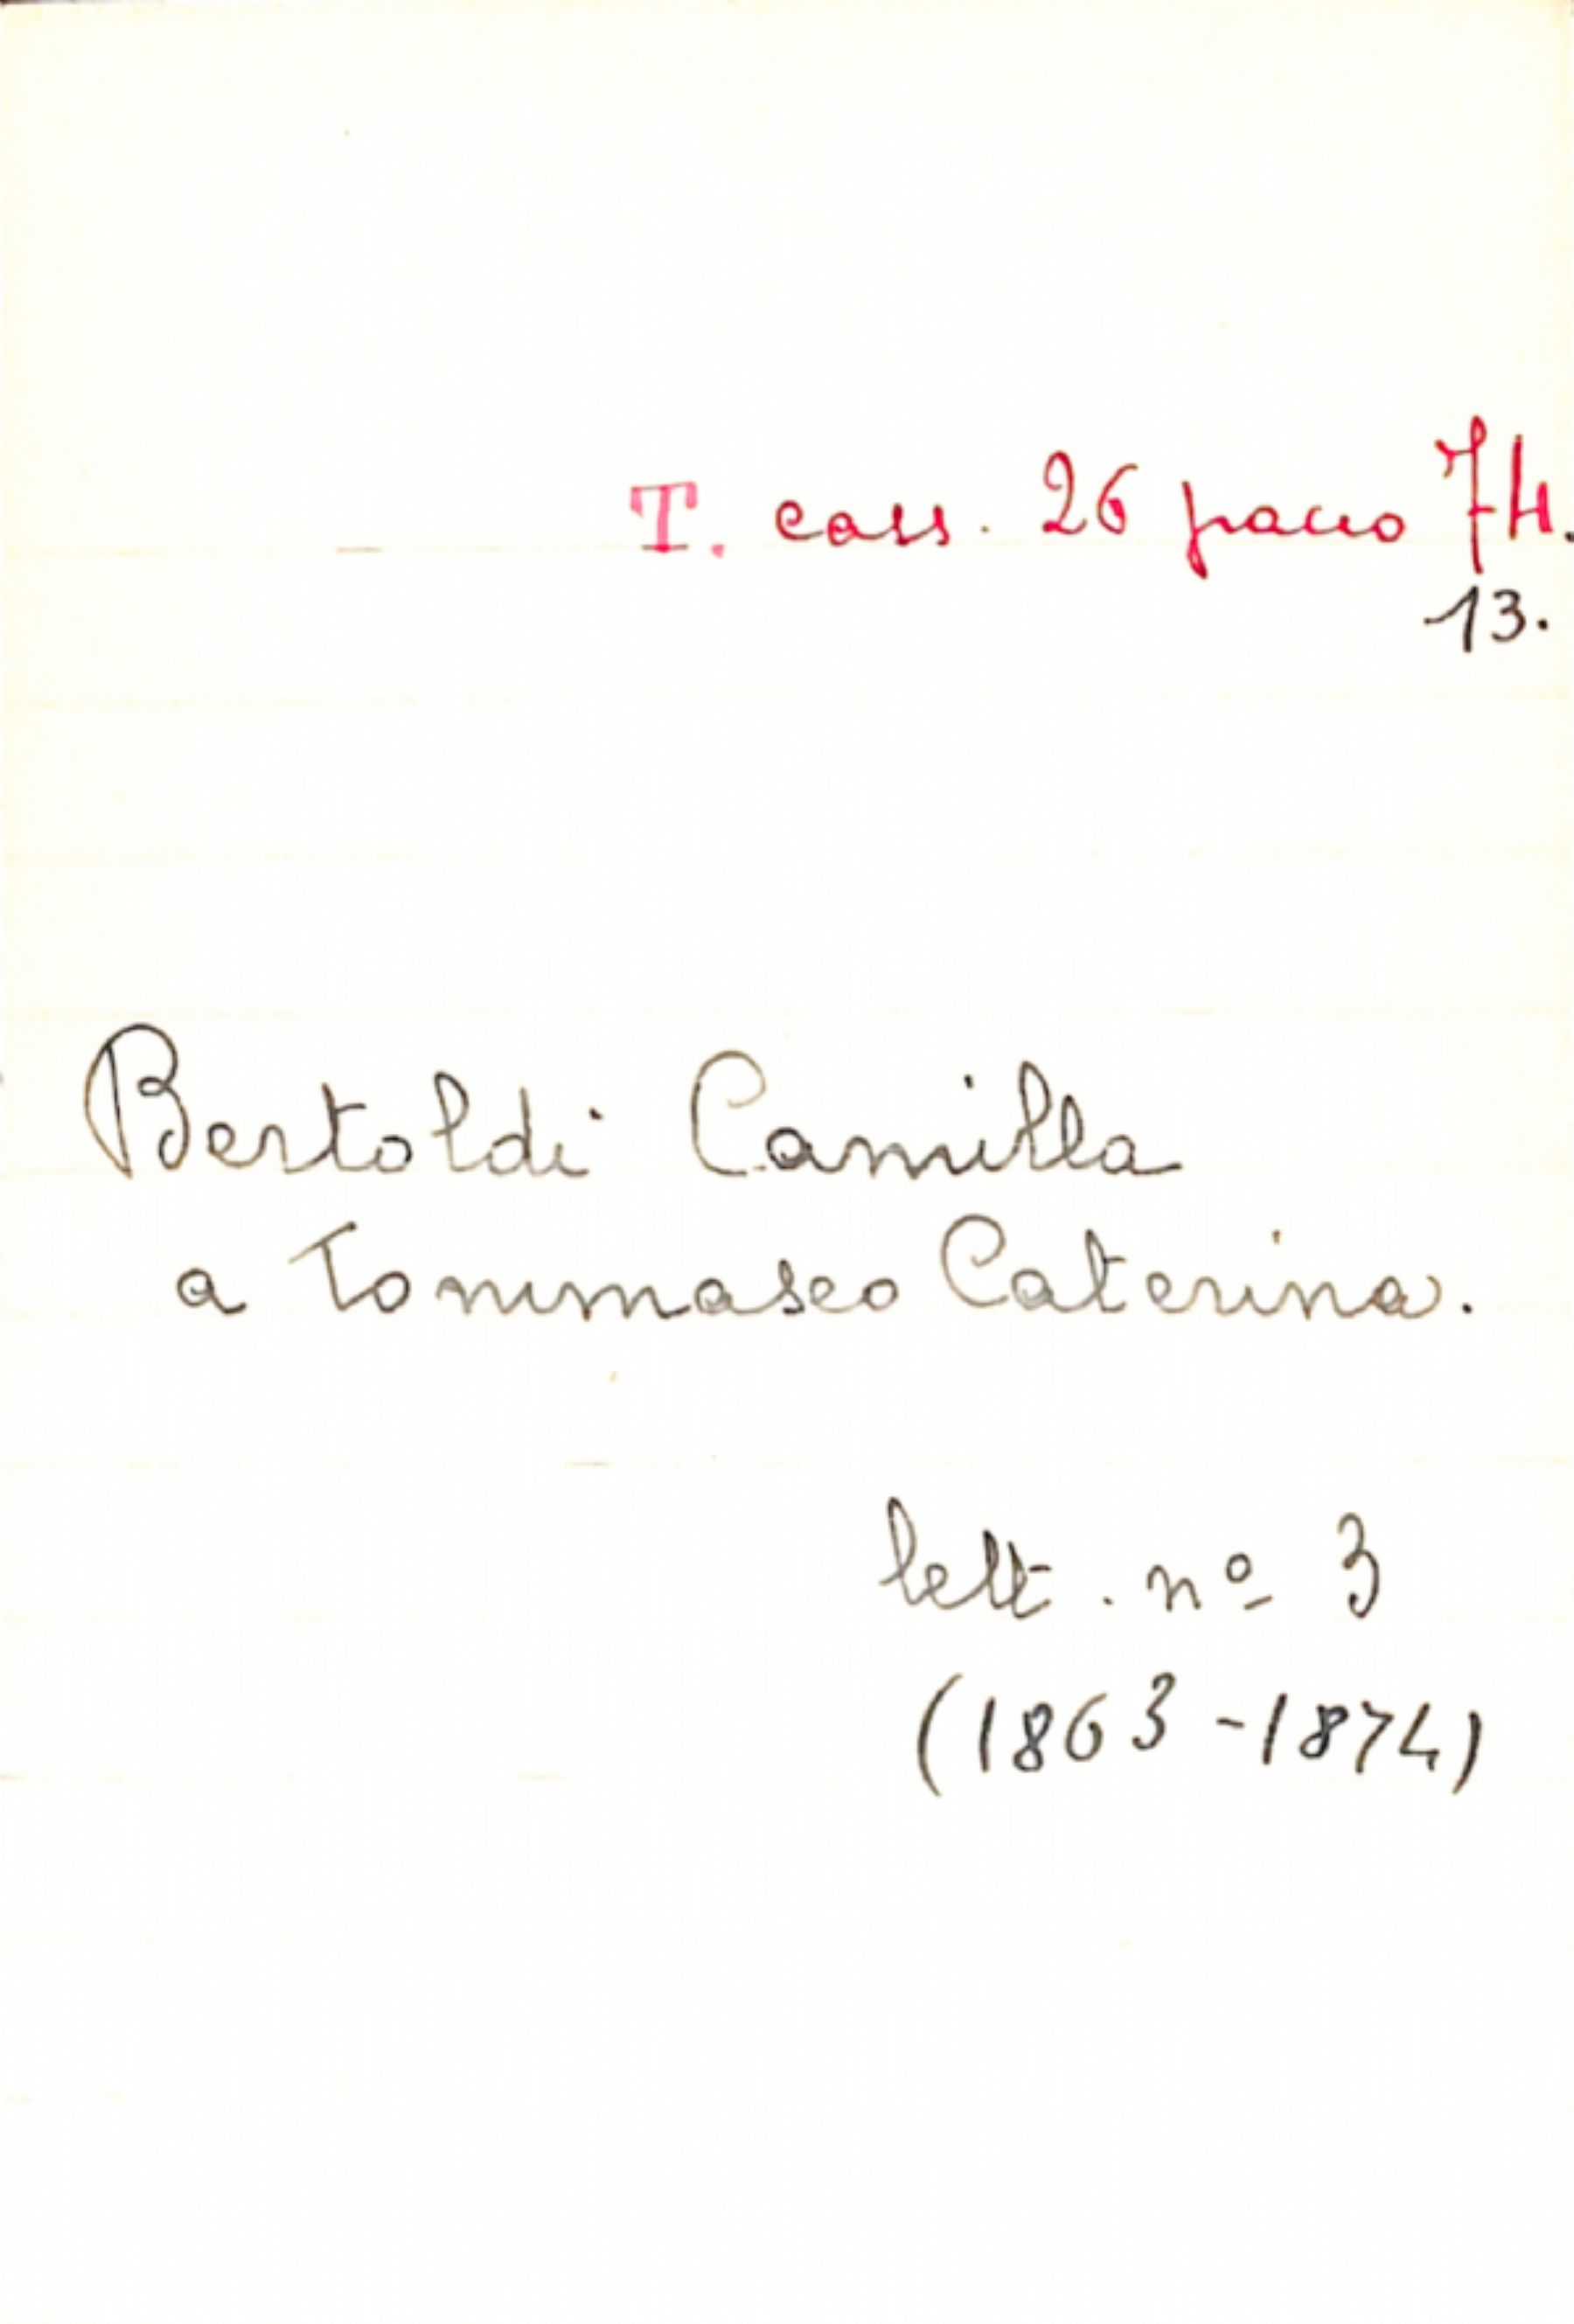 T. cass. 26 pacco 74.
13.
Bertoldi Camilla
a Tommaseo Caterina.
lett. nº 3
(1863-1874)